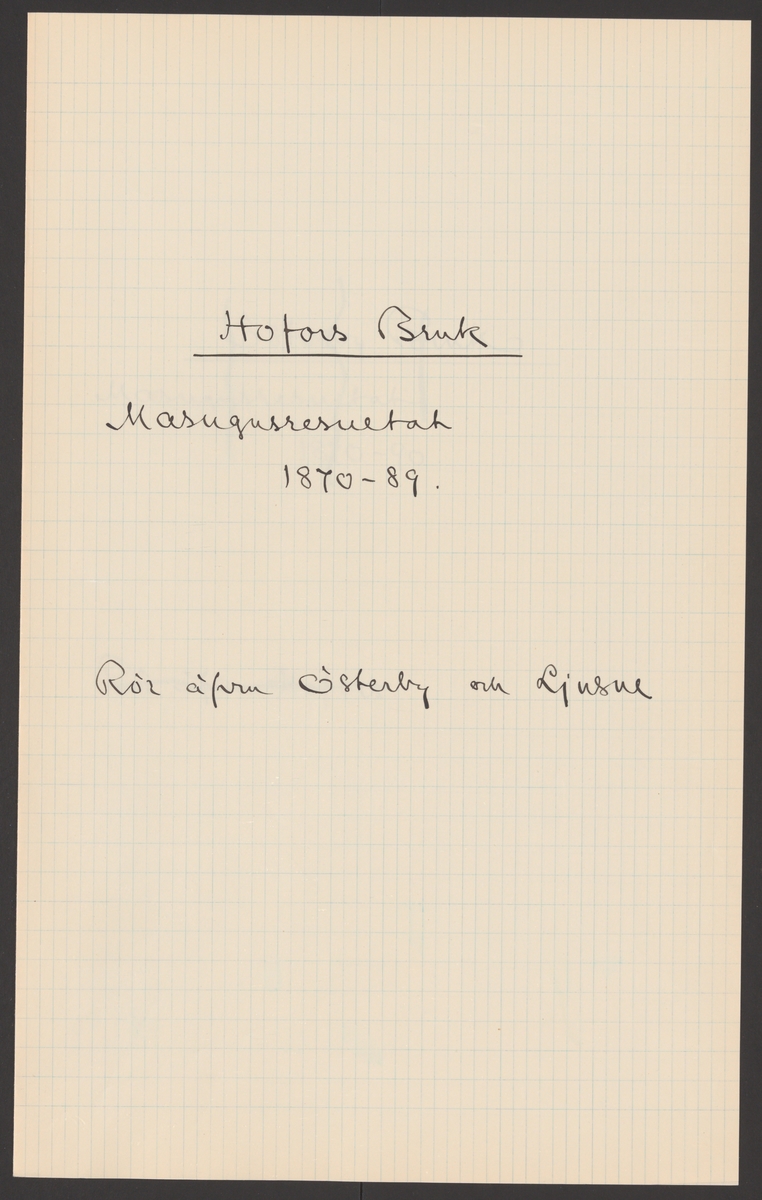 Hofors Bruk
Masugnsresultat
1870-89.
Rör äfven Österby och Ljusne